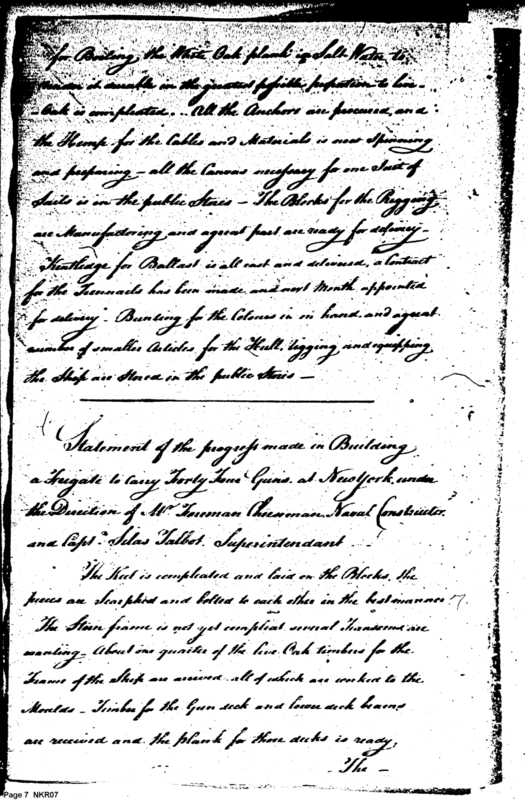 for Boiling the White Oak plank in Salt Water to
render it durable in the greatest possible proportion to live-
-Oak is compleated.. All the Anchors are procured, and
the Hemp for the Cables and Materials is now Spinning
and preparing - all the Canvas necessary for one Suit of
Sails is in the public Stores - The Blocks for the Rigging
are Manufactoring and a great part are ready for delivery -
Kentledge for Ballast is all cast and delivered, a Contract
for the Treenaels has been made and next Month appointed
for delivery - Bunting for the Colours in on hand and a great
number of smaller Articles for the Hull, rigging and equipping
the Ship are Stored in the public Stores -
Statement of the progress made in Building
a Frigate to carry Forty Four Guns, at New York, under
the Direction of Mr. Foreman Cheesman Naval Constructor,
and Captn. Silas Talbot. Superintendant
The Keel is compleated and laid on the Blocks, the
pieces are Scarphed and bolted to each other in the best manner
The Stern frame is not yet compleat several Transoms are
wanting - About one quarter of the live Oak timbers for the
Frame of the Ship are arrived all of which are worked to the
Moulds - Timber for the Gun deck and lower deck beams
are received and the plank for those decks is ready,
The -
Page 7 NKR07